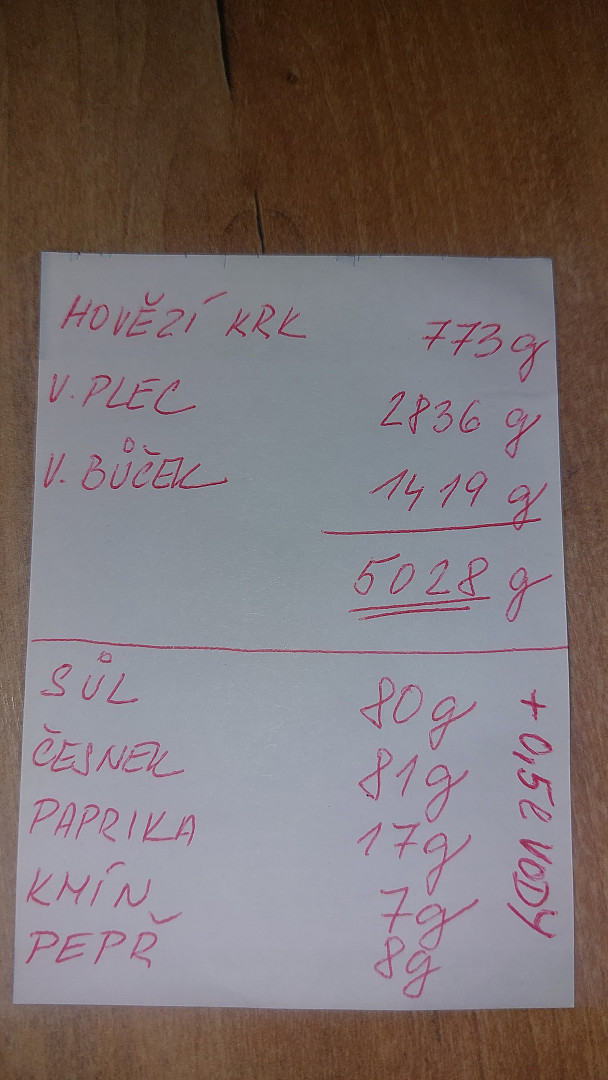 HOVĚZÍ KRK 773 g
V. PLEC 2836 g
V. BŮČEK 1419 g
5028 g
SŮL 80 g
ČESNEK 81 g
PAPRIKA 17 g
KMÍN 7 g
PEPŘ 8 g
+ 0,5 l VODY